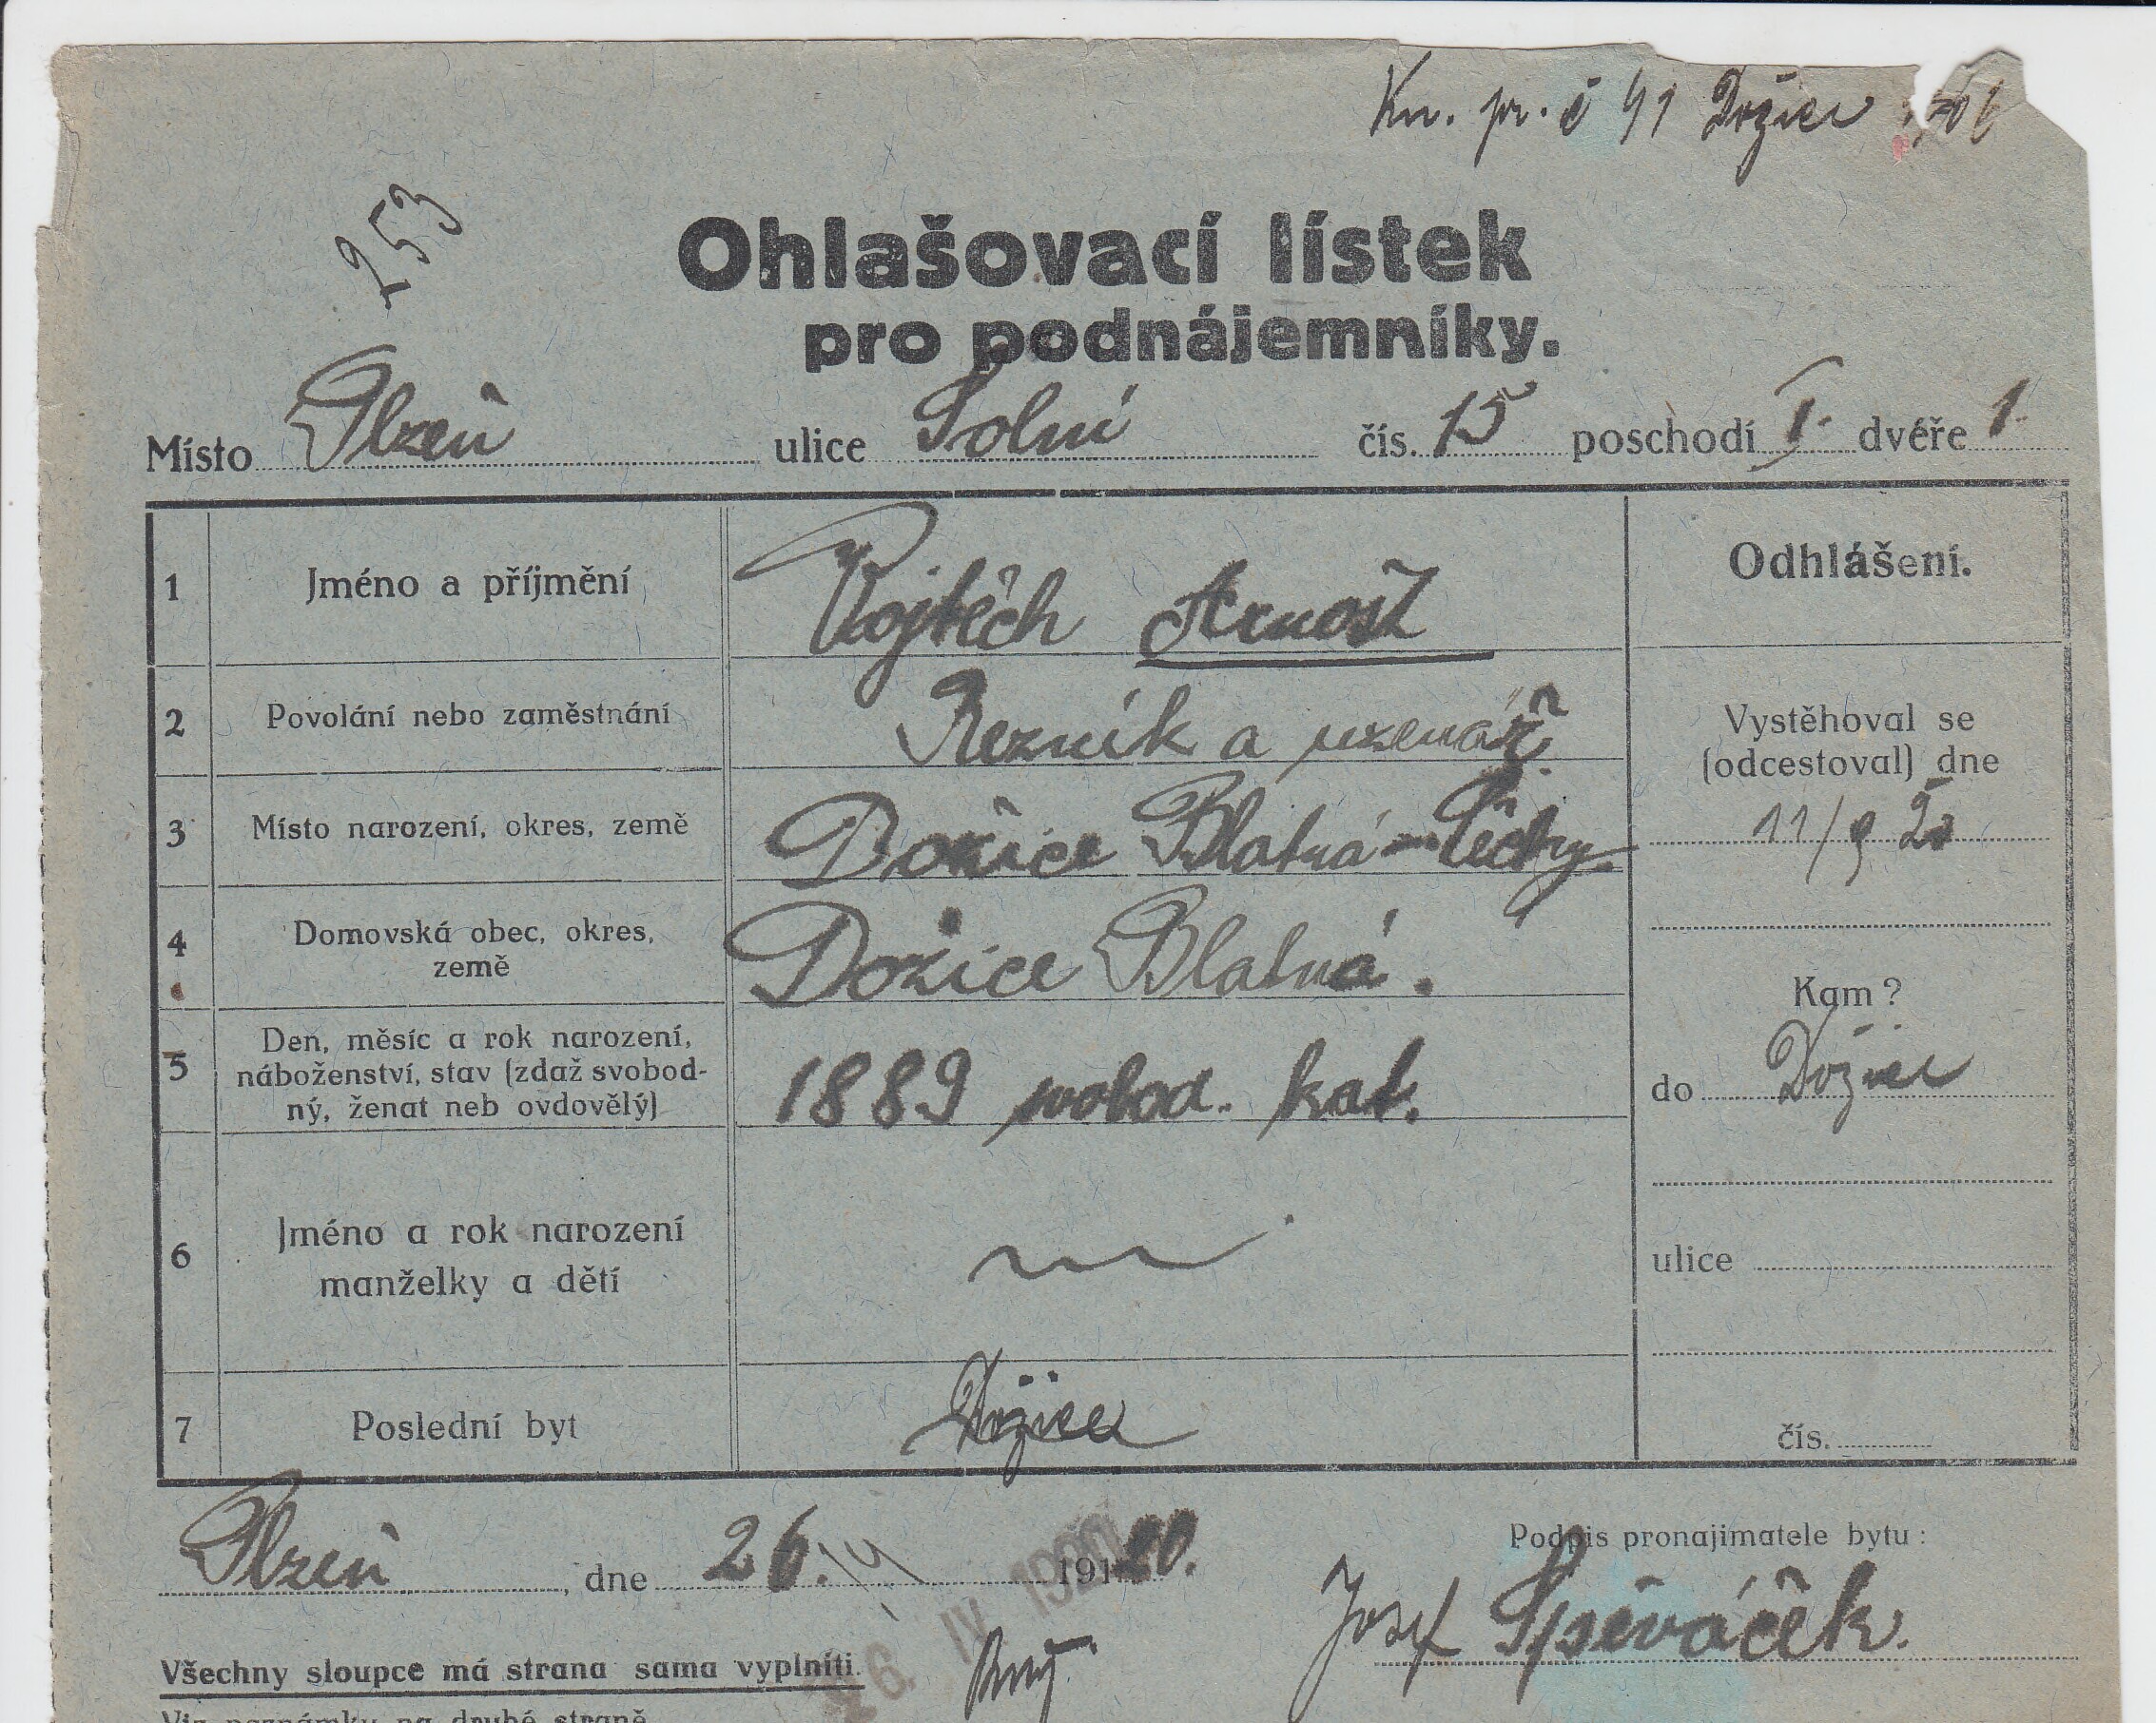 Kn. pr. č 41 Dožice
253
Ohlašovací lístek
pro podnájemníky.
Místo Plzeň ulice Solní čís. 15 poschodí I. dvéře 1.
1 Jméno a příjmění Vojtěch Arnošt Odhlášení.
2 Povolání nebo zaměstnání Řezník a uzenář Vystěhoval se
(odcestoval) dne
3 Místo narození, okres, země Dožice Blatná - Čechy 11/9 20
4 Domovská obec, okres,
země Dožice Blatná.
Kam?
5 Den, měsíc a rok narození,
náboženství, stav (zdaž svobod-
ný, ženat neb ovdovělý) 1889 svobod. kat. do Dožice
6 Jméno a rok narození
manželky a dětí
ulice
7 Poslední byt Dožice čís.
Plzeň, dne 26. IV 191 20.
26. IV. 1920
Podpis pronajimatele bytu:
Josef Spěváček.
Všechny sloupce má strana sama vyplniti.
Viz poznámku na druhé straně